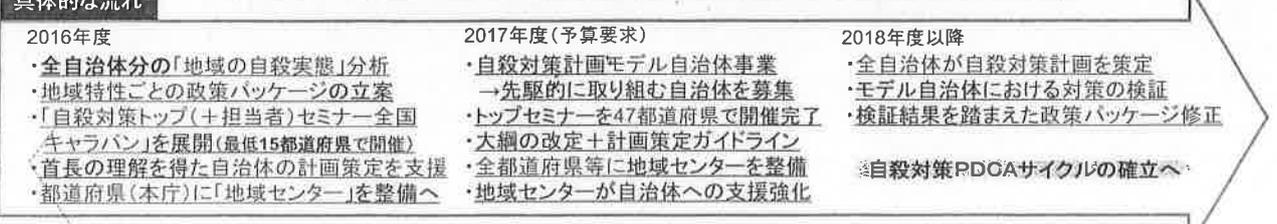 具体的な流れ
2016年度
・全自治体分の「地域の自殺実態」分析
・地域特性ごとの政策パッケージの立案
・「自殺対策トップ(+担当者)セミナー全国
キャラバン」を展開(最低15都道府県で開催)
・首長の理解を得た自治体の計画策定を支援
・都道府県(本庁)に「地域センター」を整備へ
2017年度(予算要求)
・自殺対策計画モデル自治体事業
→先駆的に取り組む自治体を募集
・トップセミナーを47都道府県で開催完了
・大綱の改定+計画策定ガイドライン
・全都道府県等に地域センターを整備
・地域センターが自治体への支援強化
2018年度以降
・全自治体が自殺対策計画を策定
・モデル自治体における対策の検証
・検証結果を踏まえた政策パッケージ修正
自殺対策PDCAサイクルの確立へ